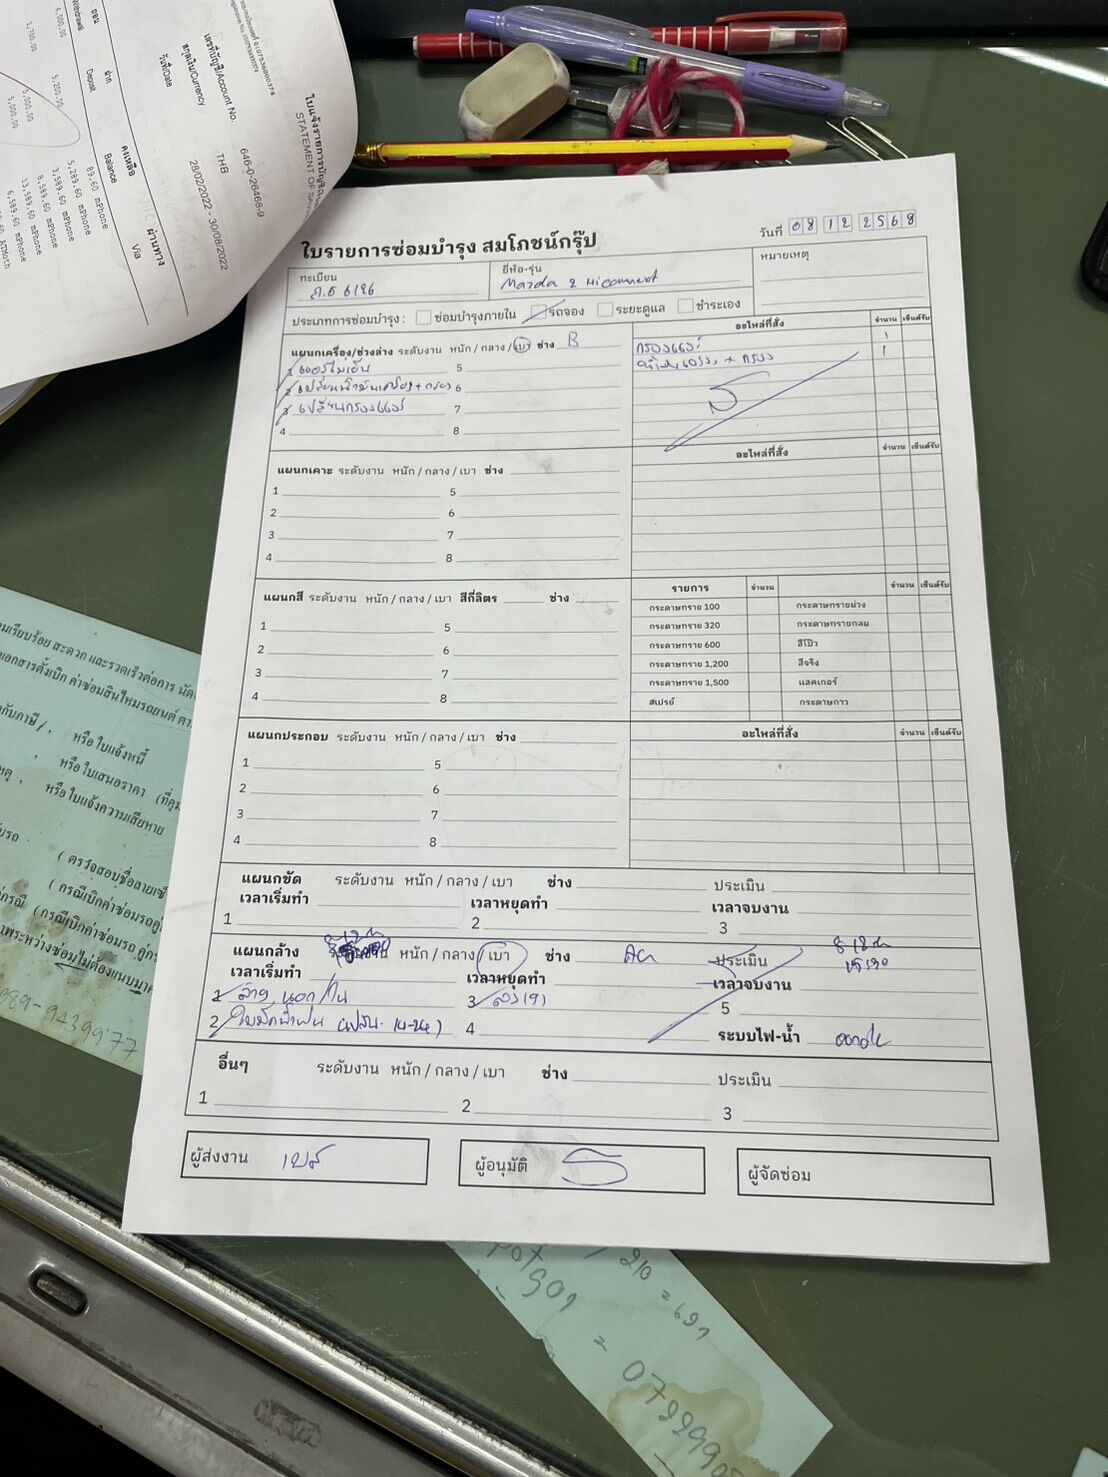 ใบรายการซ่อมบำรุง สมโภชน์กรุ๊ป
วันที่ 08 12 2568
ทะเบียน
6196
ยี่ห้อ-รุ่น
Mazda 2 Hiconnect
หมายเหตุ
ประเภทการซ่อมบำรุง : ซ่อมบำรุงภายใน รถจอง ระยะดูแล ชำระเอง
แผนกเครื่อง/ช่วงล่าง ระดับงาน หนัก / กลาง / เบา ช่าง B
อะไหล่ที่สั่ง จำนวน เซ็นต์รับ
1 แอร์ไม่เย็น 5
2 เปลี่ยนน้ำมันเครื่อง + กรอง 6
3 เปลี่ยนกรองแอร์ 7
4 8
กรองแอร์ 1
น้ำมันเครื่อง + กรอง 1
แผนกเคาะ ระดับงาน หนัก / กลาง / เบา ช่าง
อะไหล่ที่สั่ง จำนวน เซ็นต์รับ
1 5
2 6
3 7
4 8
แผนกสี ระดับงาน หนัก / กลาง / เบา สีกี่ลิตร ช่าง
รายการ จำนวน จำนวน เซ็นต์รับ
1 5
2 6
3 7
4 8
กระดาษทราย 100 กระดาษทรายม่วง
กระดาษทราย 320 กระดาษทรายกลม
กระดาษทราย 600 สีโป๊ว
กระดาษทราย 1,200 สีจริง
กระดาษทราย 1,500 แลคเกอร์
สเปรย์ กระดาษกาว
แผนกประกอบ ระดับงาน หนัก / กลาง / เบา ช่าง
อะไหล่ที่สั่ง จำนวน เซ็นต์รับ
1 5
2 6
3 7
4 8
แผนกขัด ระดับงาน หนัก / กลาง / เบา ช่าง ประเมิน
เวลาเริ่มทำ เวลาหยุดทำ เวลาจบงาน
1 2 3
แผนกล้าง ระดับงาน หนัก / กลาง / เบา ช่าง ประเมิน
เวลาเริ่มทำ เวลาหยุดทำ เวลาจบงาน
1 ล้าง นอก/ใน 3 5
2 ใบปัดน้ำฝน 4 ระบบไฟ-น้ำ
อื่นๆ ระดับงาน หนัก / กลาง / เบา ช่าง ประเมิน
1 2 3
ผู้ส่งงาน
ผู้อนุมัติ
ผู้จัดซ่อม
STATEMENT OF
เลขที่บัญชี/Account No. 646-0-26468-9
สกุลเงิน/Currency THB
วันที่/Date 28/02/2022 - 30/08/2022
ถอน ฝาก คงเหลือ ผ่านทาง
Withdrawal Deposit Balance Via
89.60 mPhone
5,200.00 5,289.60 mPhone
3,589.60 mPhone
5,000.00 8,589.60 mPhone
5,000.00 13,589.60 mPhone
มเรียบร้อย สะดวก และรวดเร็วต่อการ
เอกสารตั้งเบิก ค่าซ่อมสินไหมรถยนต์
กับภาษี / . หรือ ใบแจ้งหนี้
หรือ ใบเสนอราคา
หรือ ใบแจ้งความเสียหาย
( กรณีเบิกค่าซ่อมรถ
(กรณีเบิกค่าซ่อมรถ
089-9439977
210 = 691